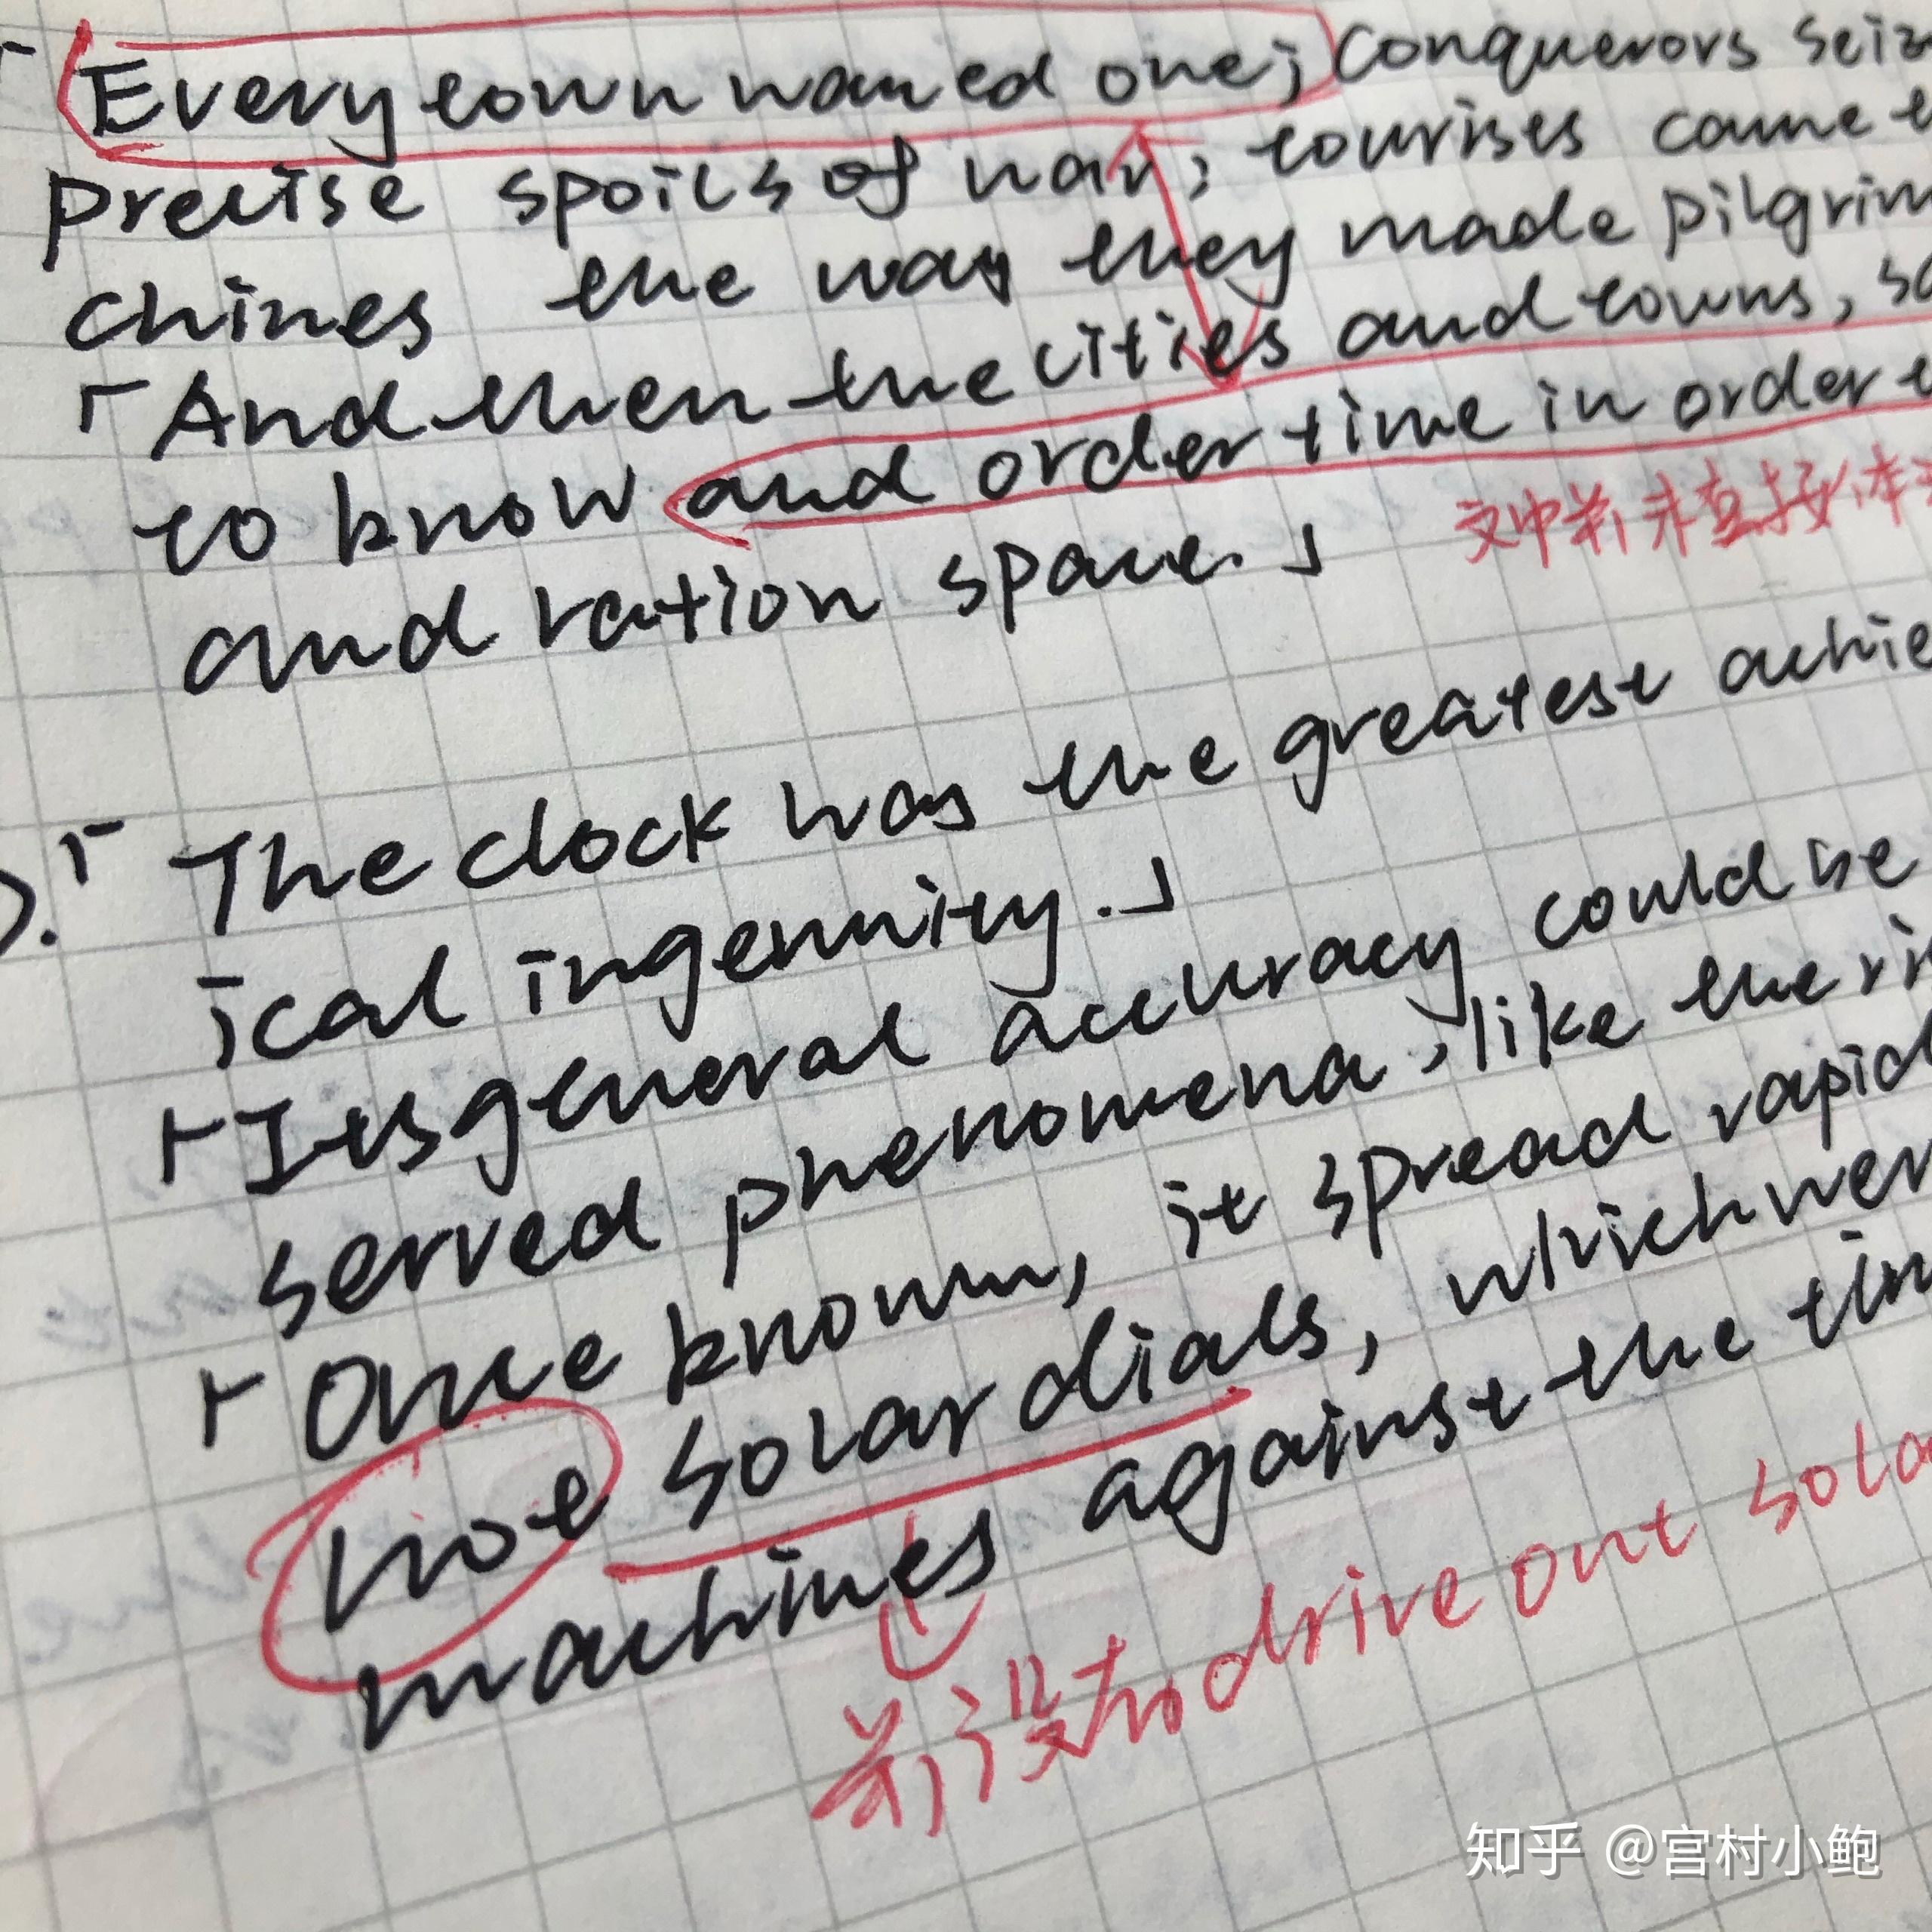 「Every town wanted one; conquerors seiz
precise spoils of war; tourists came t
chines the way they made pilgrim
「And then the cities and towns, so
to know and order time in order t
文中并未直接体
and ration space.」
「The clock was the greatest achie
ical ingenuity.」
Its general accuracy could be
served phenomena, like the ri
Once known, it spread rapid
not solar dials, which wer
machines against the tim
并没有drive out sola
知乎 @宫村小鲍